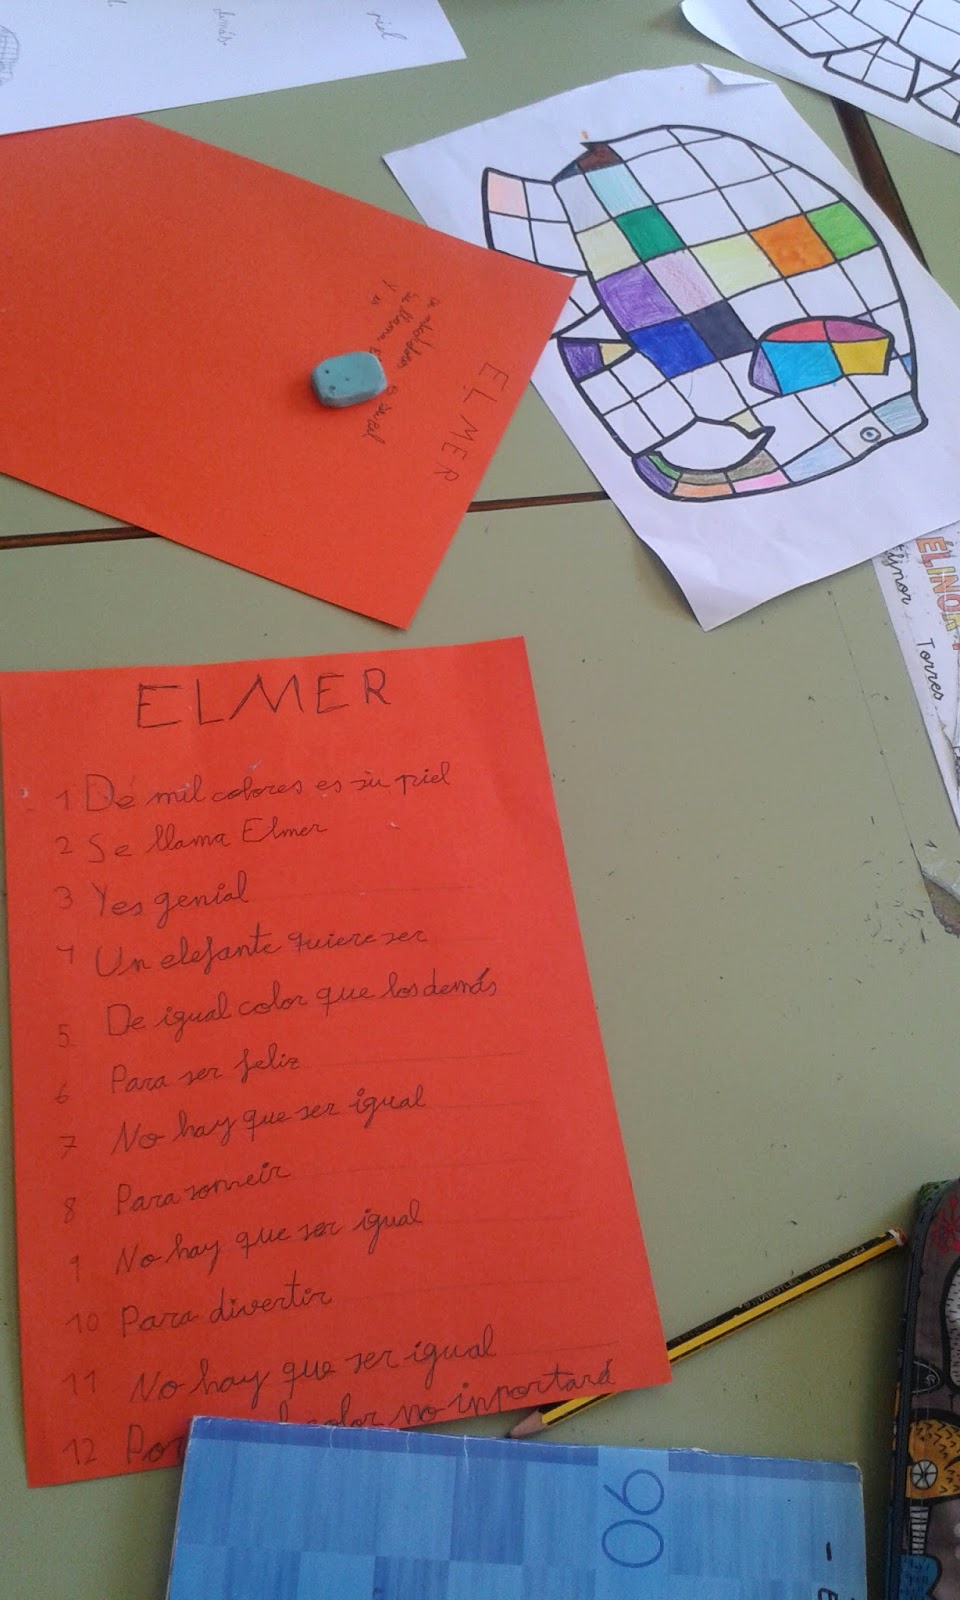 piel
demás
ELMER
se llama E
Y es
ÉLINOR
Elinor
Torres
ELMER
1 De mil colores es su piel
2 Se llama Elmer
3 Y es genial
4 Un elefante quiere ser
5 De igual color que los demás
6 Para ser feliz
7 No hay que ser igual
8 Para sonreir
9 No hay que ser igual
10 Para divertir
11 No hay que ser igual
12 Por color no inportará
06